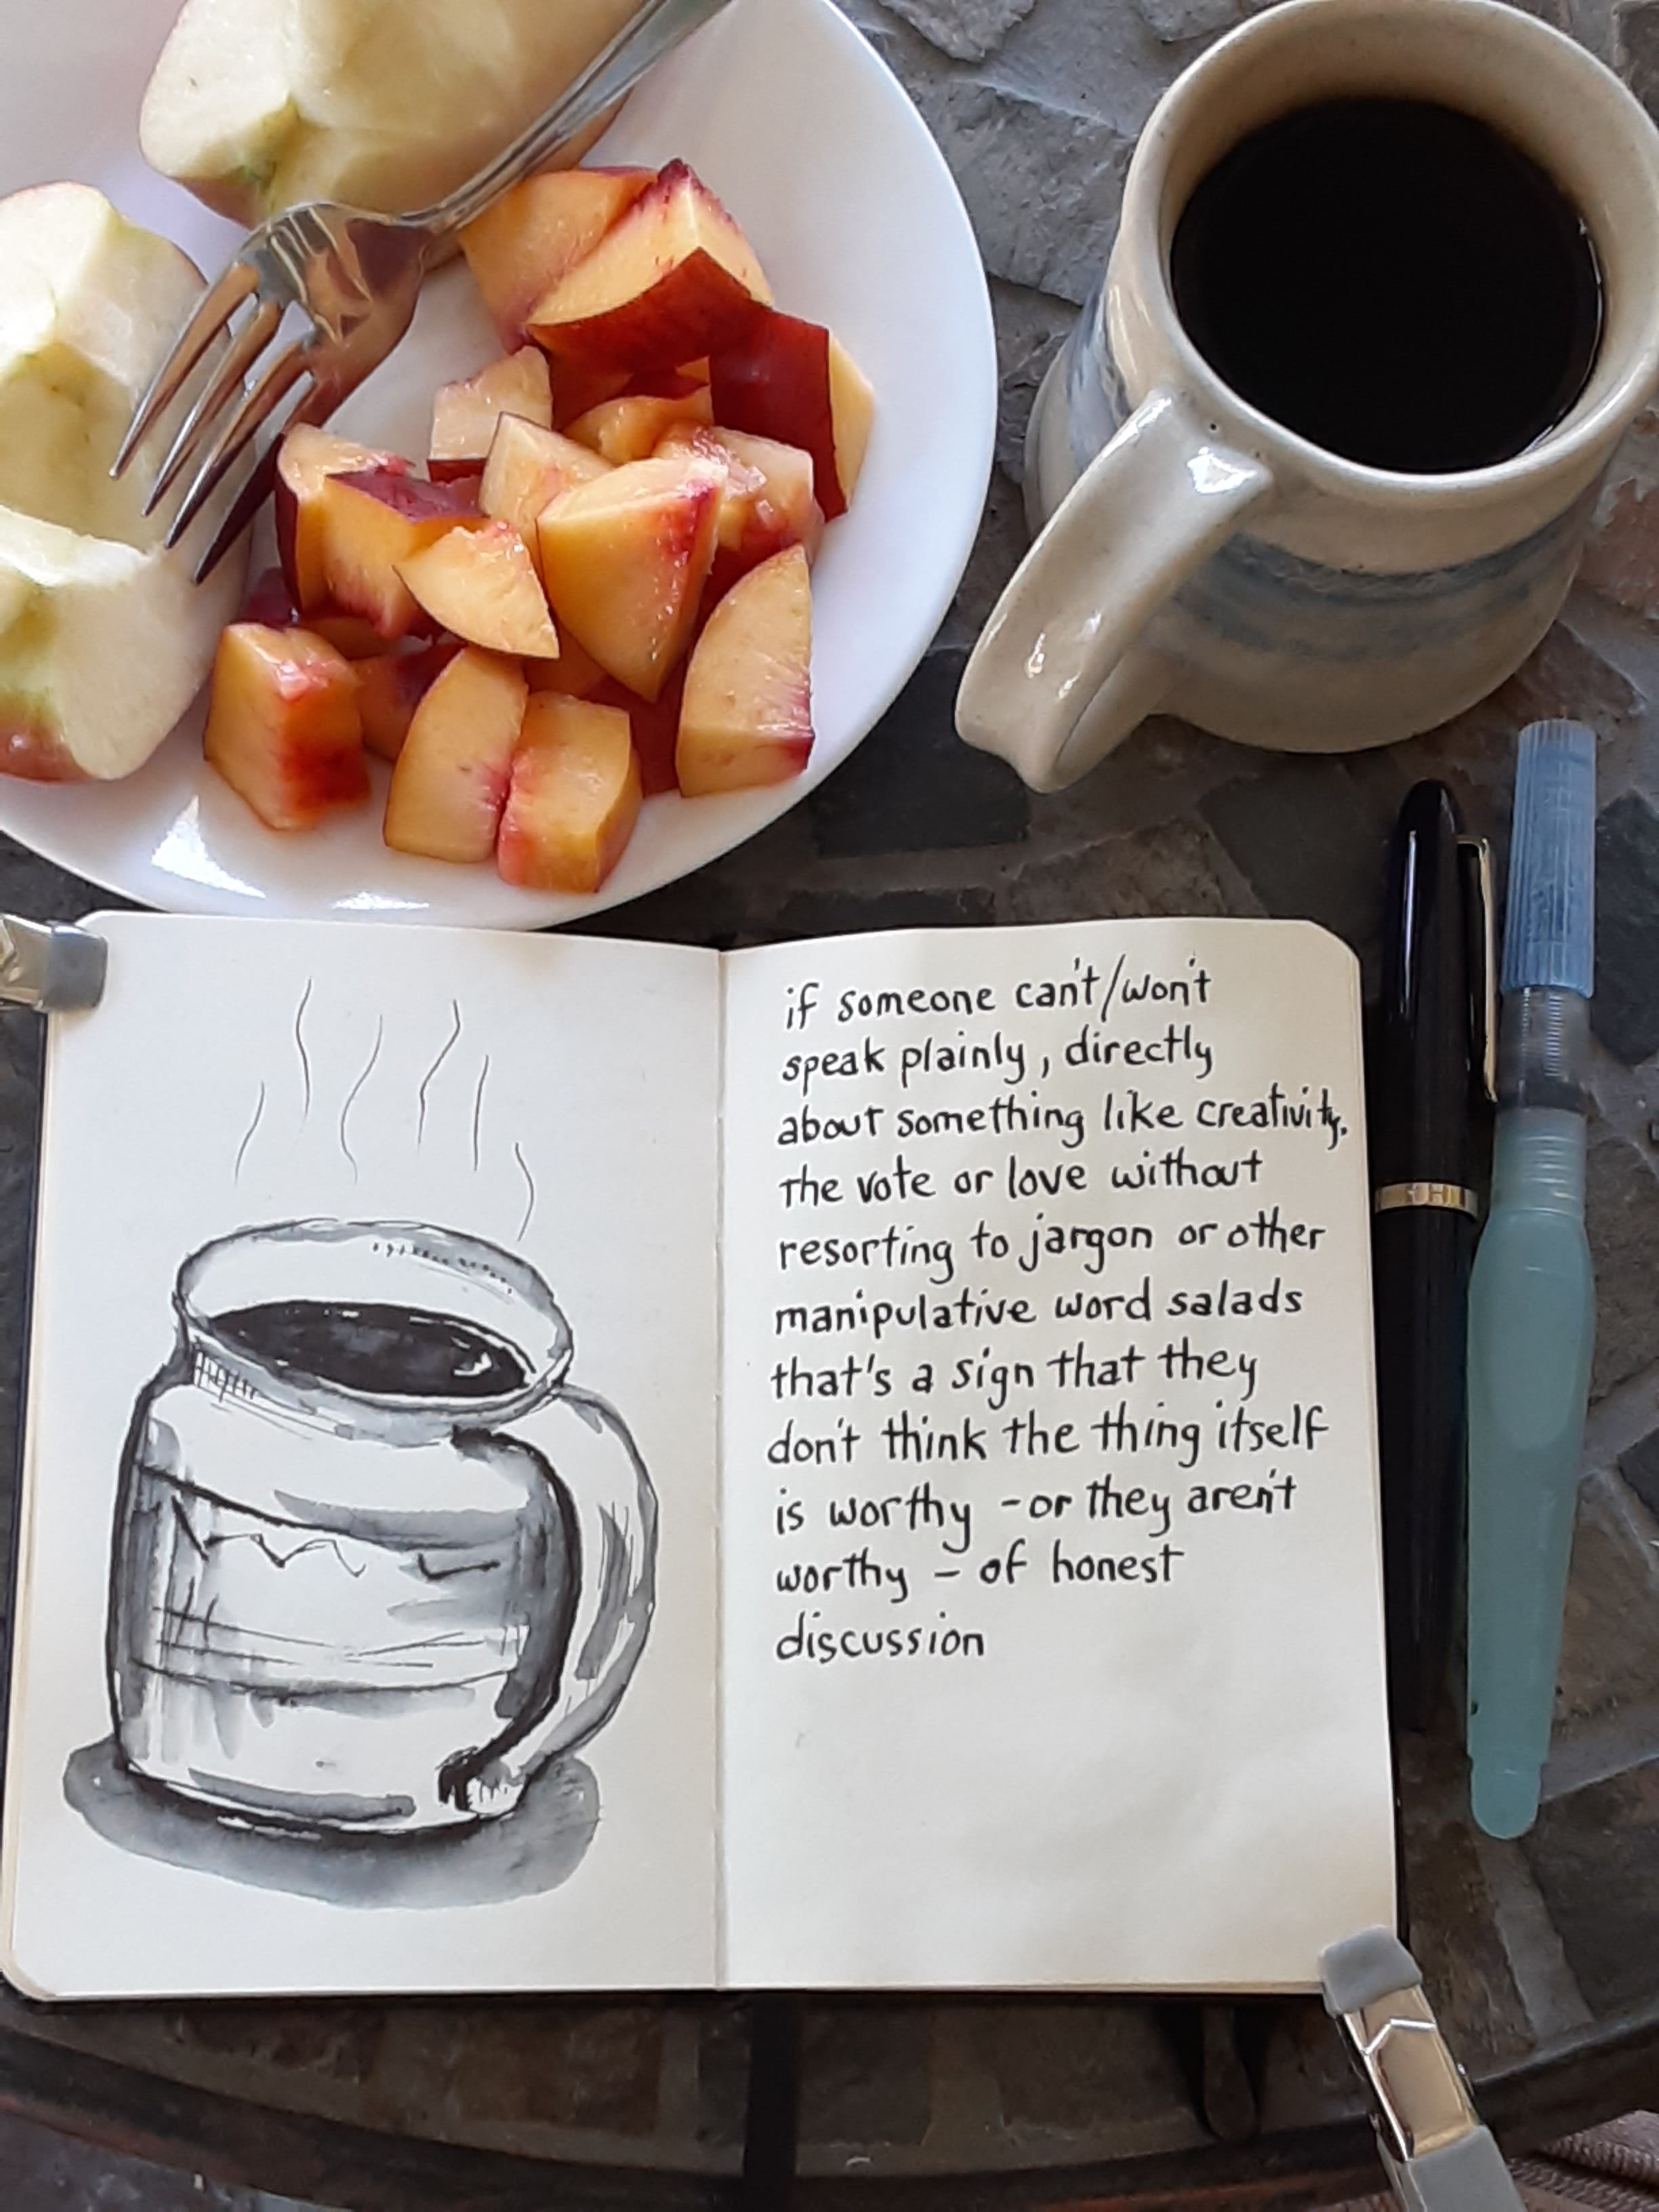 if someone can't/won't
speak plainly, directly
about something like creativity,
the vote or love without
resorting to jargon or other
manipulative word salads
that's a sign that they
don't think the thing itself
is worthy - or they aren't
worthy - of honest
discussion